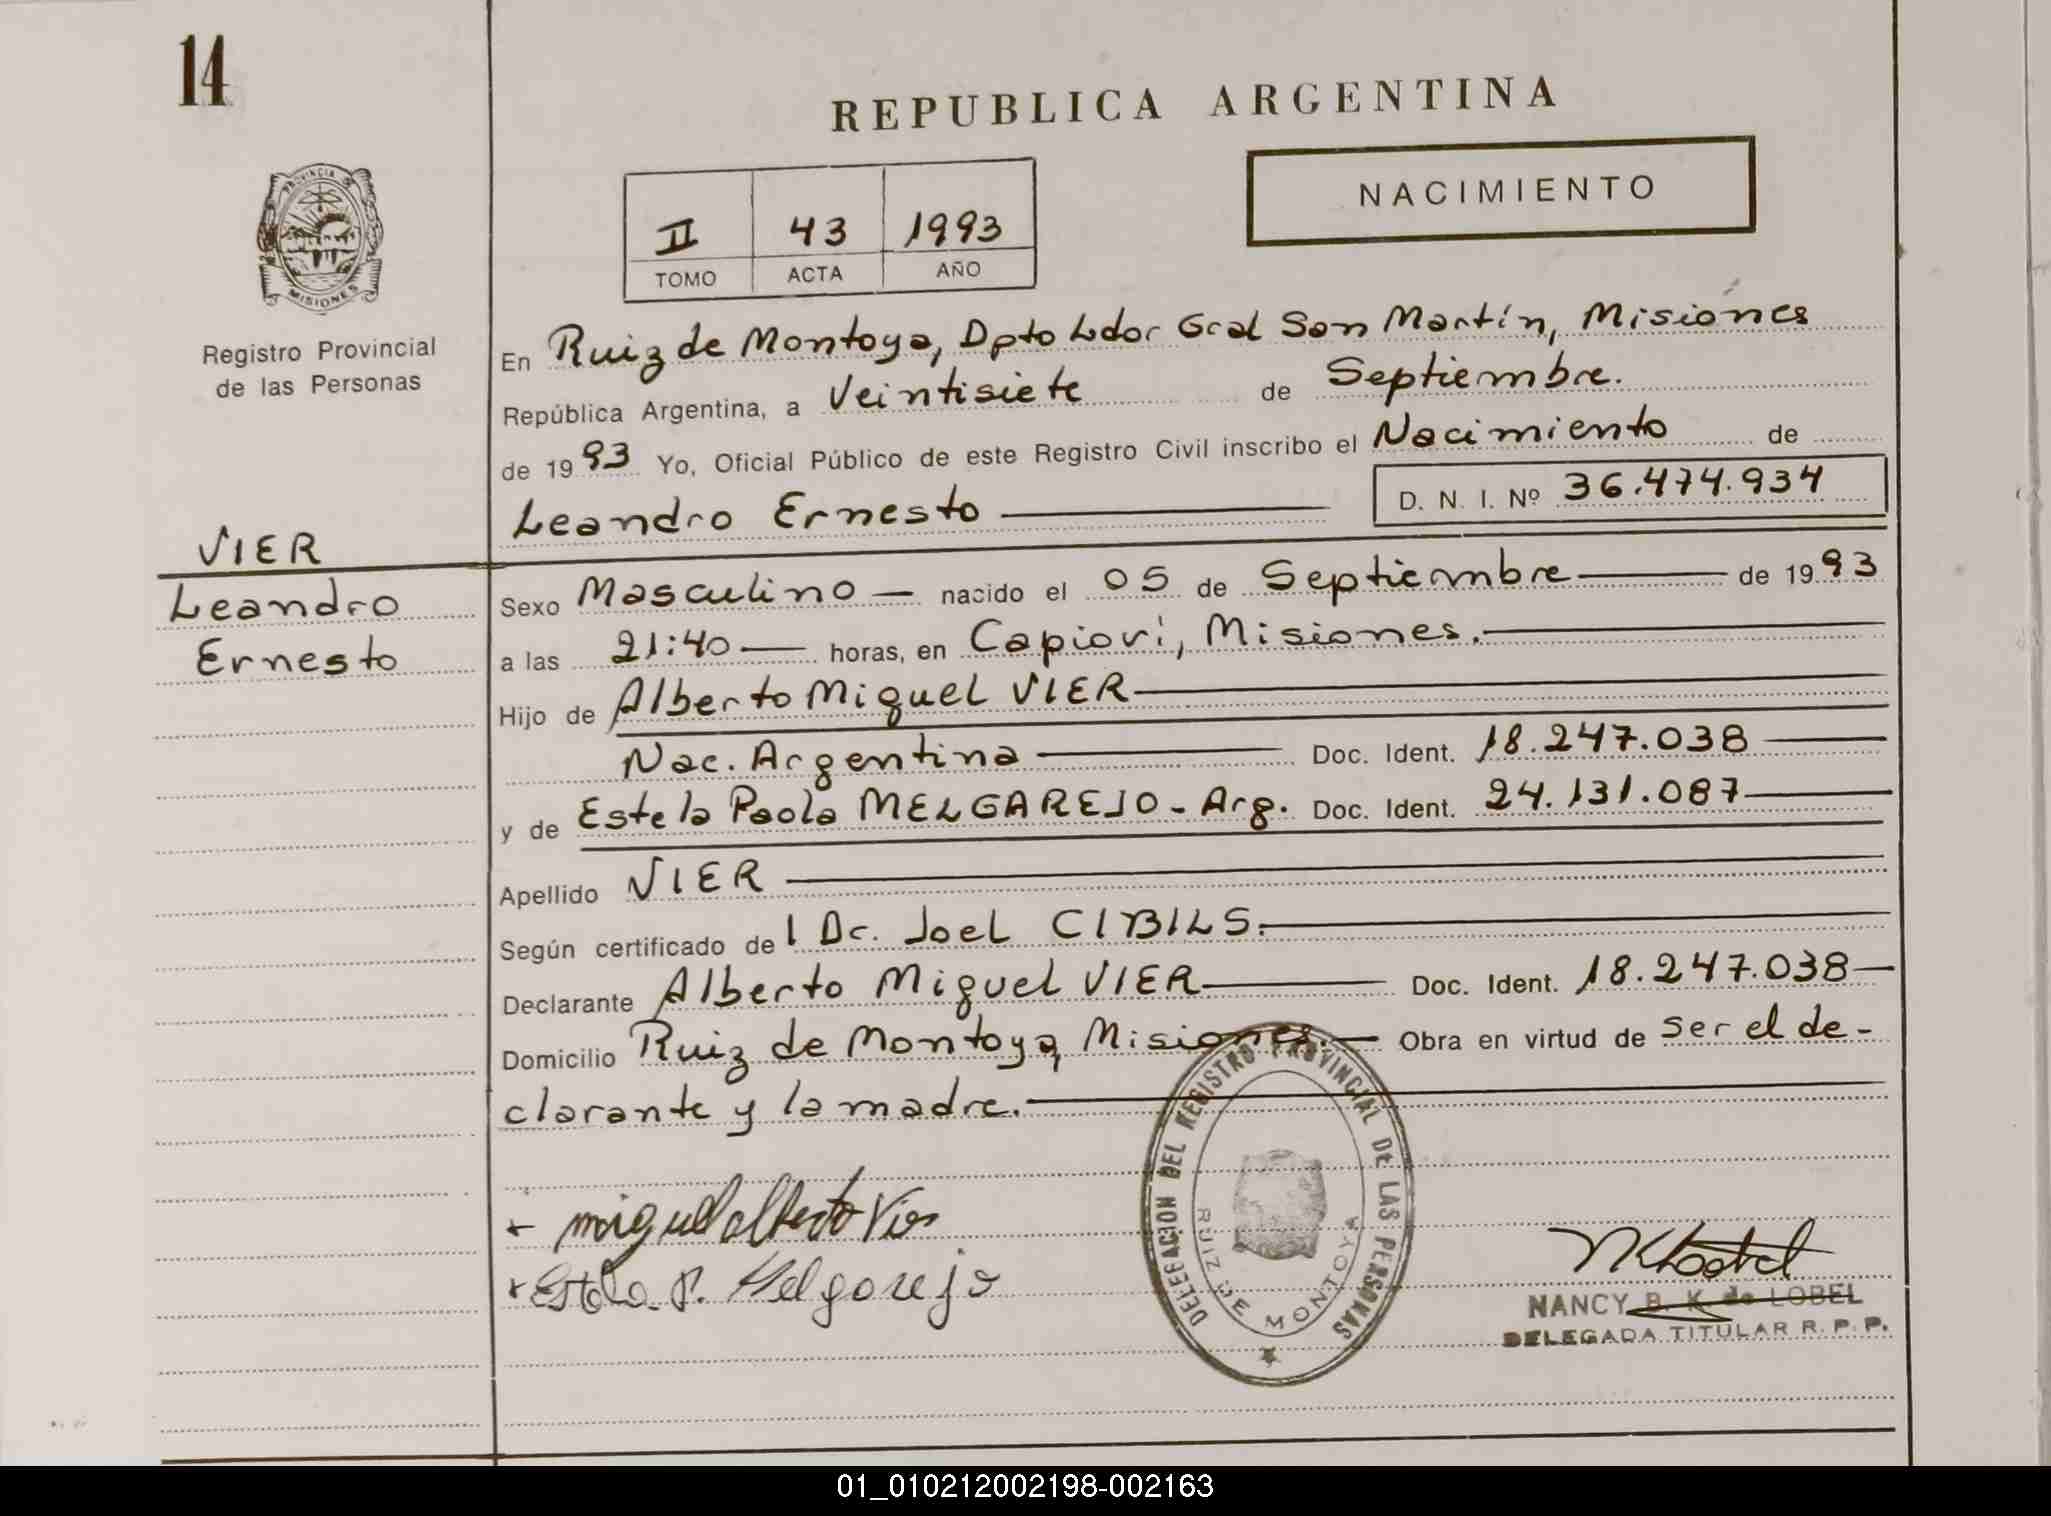 14
REPUBLICA ARGENTINA
NACIMIENTO
II 43 1993
TOMO ACTA AÑO
PROVINCIA
MISIONES
Registro Provincial
de las Personas
En Ruiz de Montoya, Dpto Ldor Gral San Martín, Misiones
República Argentina, a Veintisiete de Septiembre.
de 1993 Yo, Oficial Público de este Registro Civil inscribo el Nacimiento de
Leandro Ernesto D. N. I. Nº 36.474.934
VIER
Leandro
Ernesto
Sexo Masculino — nacido el 05 de Septiembre — de 1993
a las 21:40 — horas, en Capioví, Misiones. —
Hijo de Alberto Miguel VIER —
Nac. Argentina — Doc. Ident. 18.247.038 —
y de Estela Paola MELGAREJO - Arg. Doc. Ident. 24.131.087 —
Apellido VIER —
Según certificado del Dr. Joel CIBILS. —
Declarante Alberto Miguel VIER — Doc. Ident. 18.247.038 —
Domicilio Ruiz de Montoya, Misiones. — Obra en virtud de ser el de-
clarante y la madre. —
DELEGACION DEL REGISTRO PROVINCIAL DE LAS PERSONAS
RUIZ DE MONTOYA
miguel alberto Vier
Estela P. Melgarejo
NANCY B. K. de LOBEL
DELEGADA TITULAR R. P. P.
01_010212002198-002163